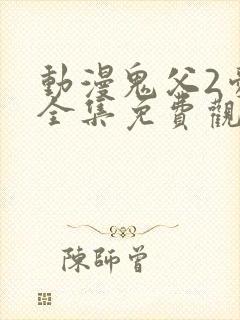 動漫鬼父2
全集免費觀
陳師曾